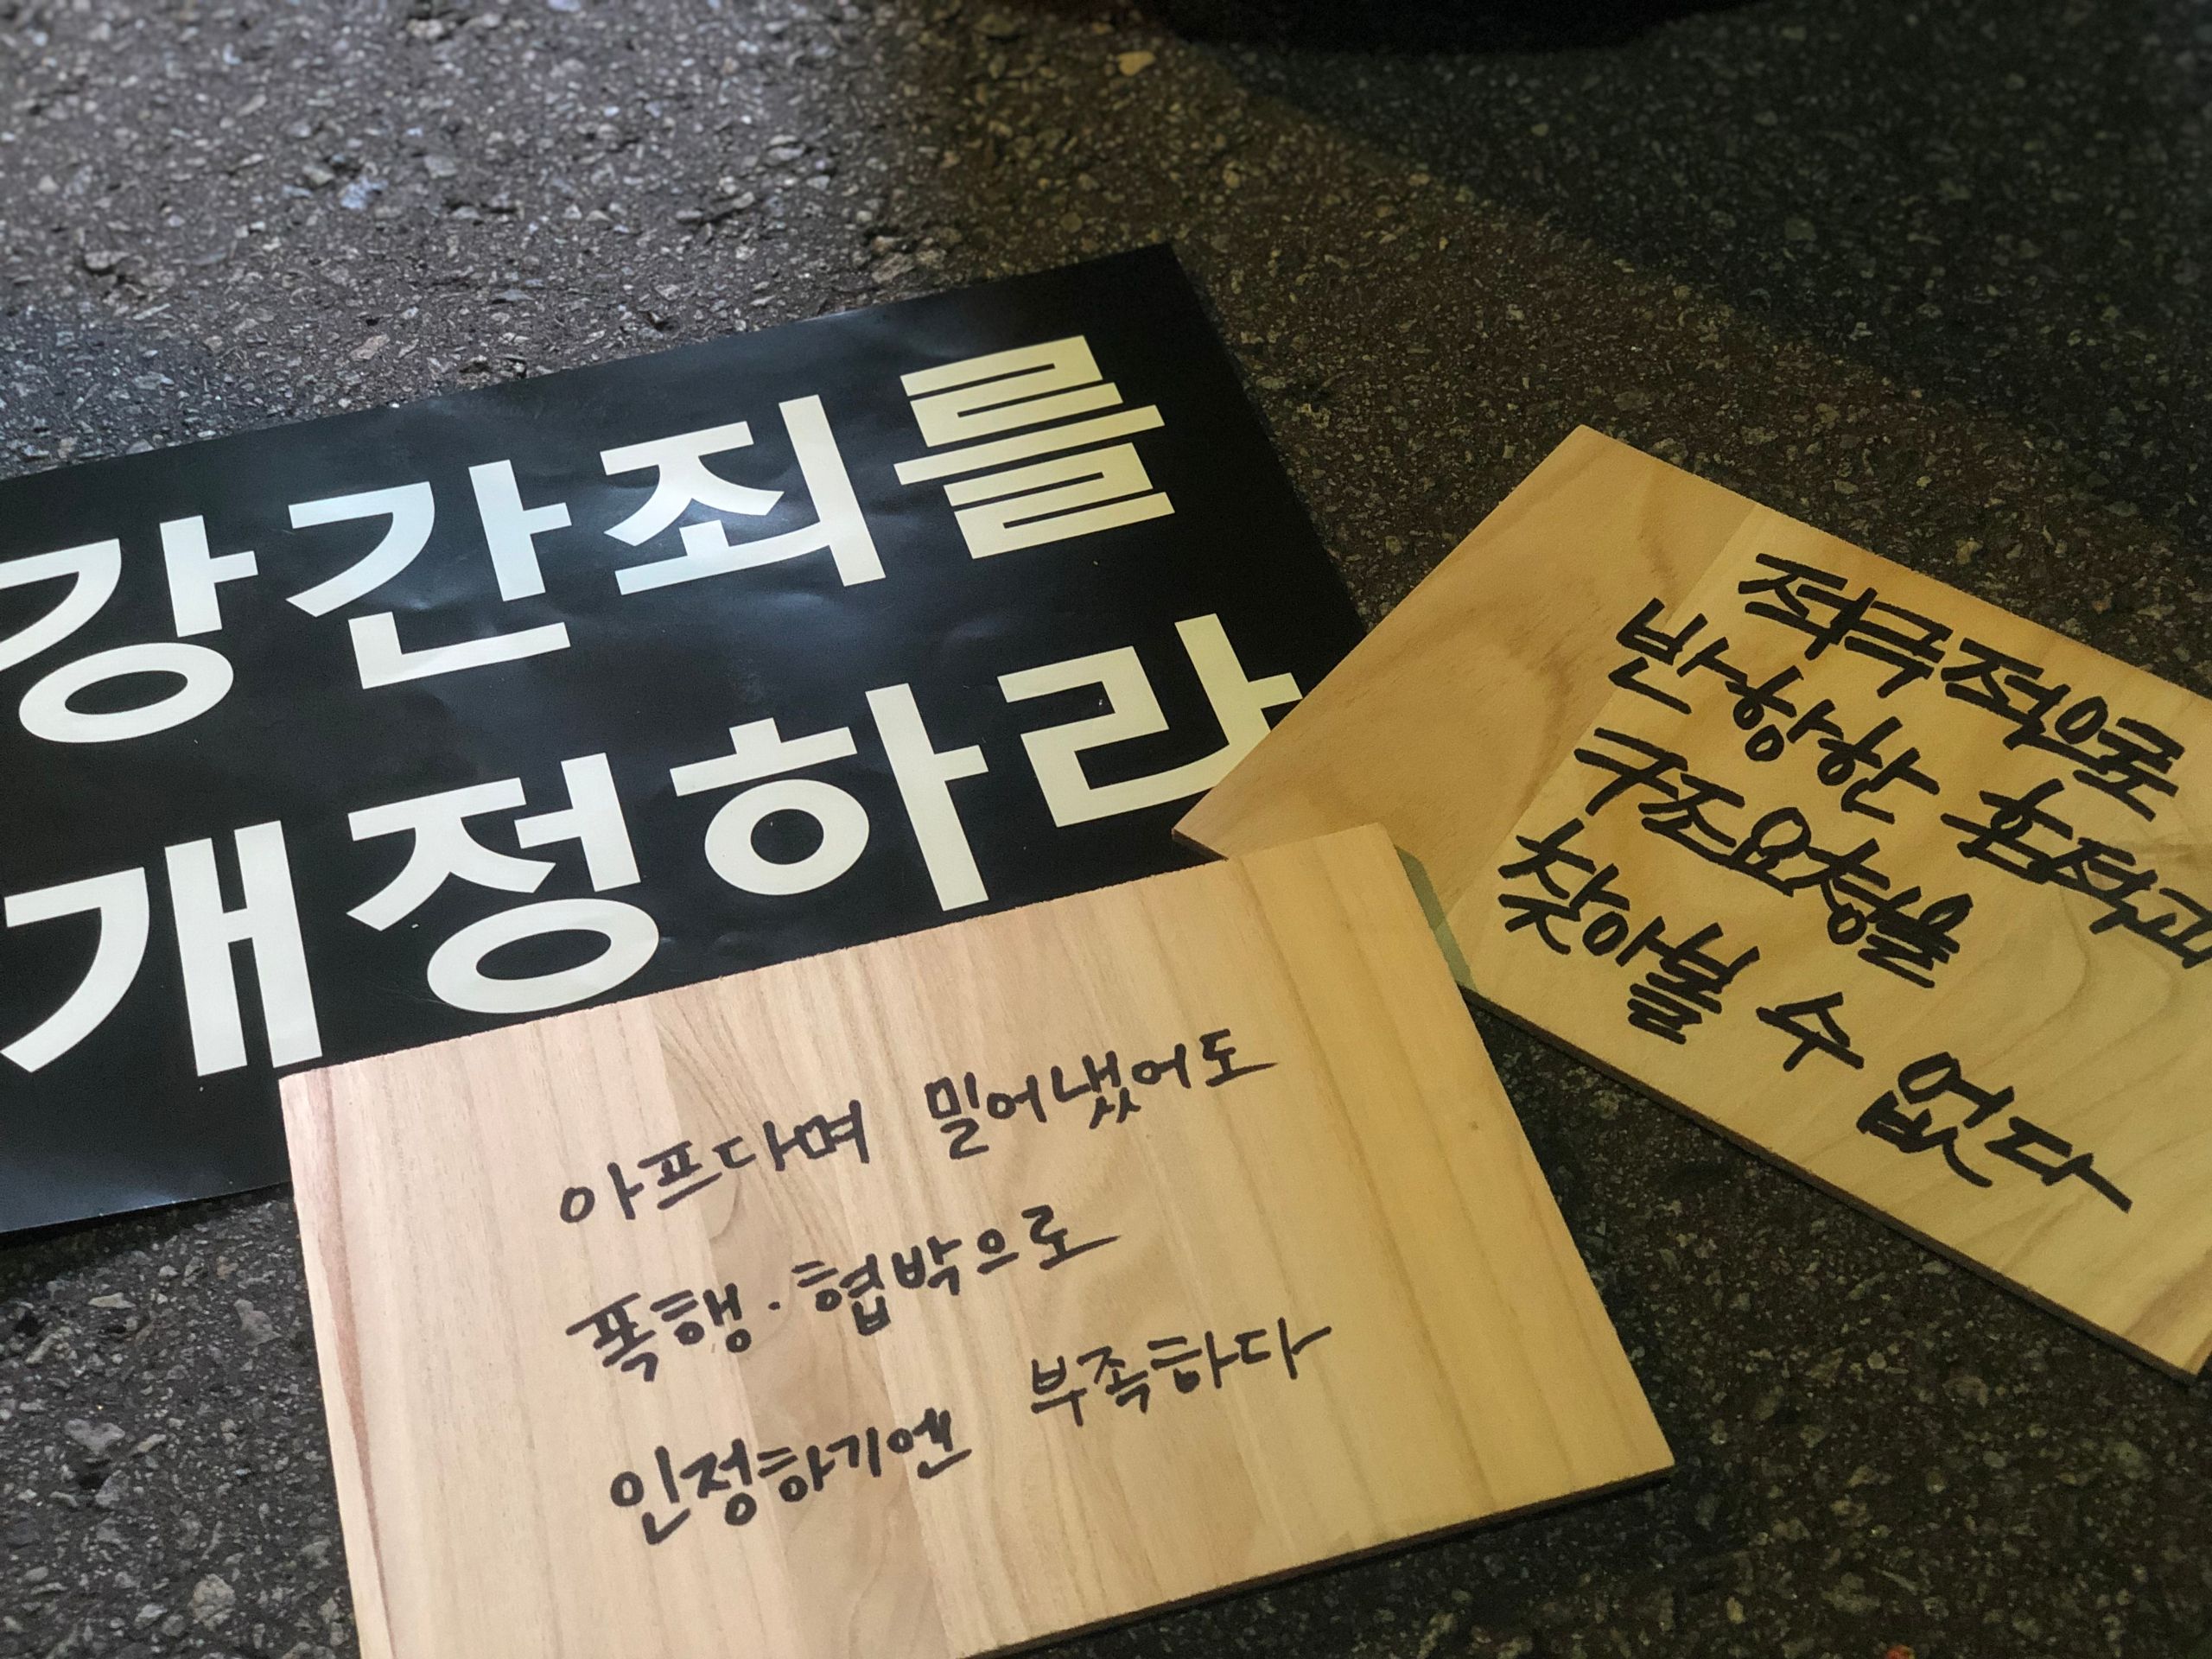 강간죄를
개정하라
적극적으로
반항한 흔적과
구조요청을
찾아볼 수 없다
아프다며 밀어냈어도
폭행·협박으로
인정하기엔 부족하다